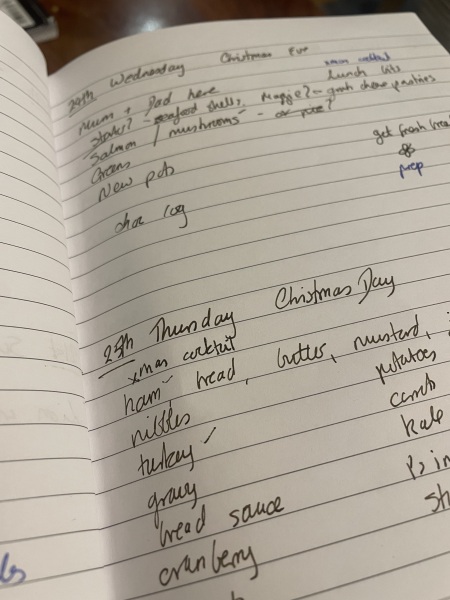 24th Wednesday Christmas Eve
xmas cocktail
lunch bits
Mum + Dad here
seafood shells, Maggie? - goats cheese
Salmon / mushrooms - or
Greens
New pots
get fresh
prep
choc log
25th Thursday Christmas Day
xmas cocktail
ham, bread, butter, mustard,
nibbles
potatoes
turkey
carrots
gravy
kale
bread sauce
cranberry